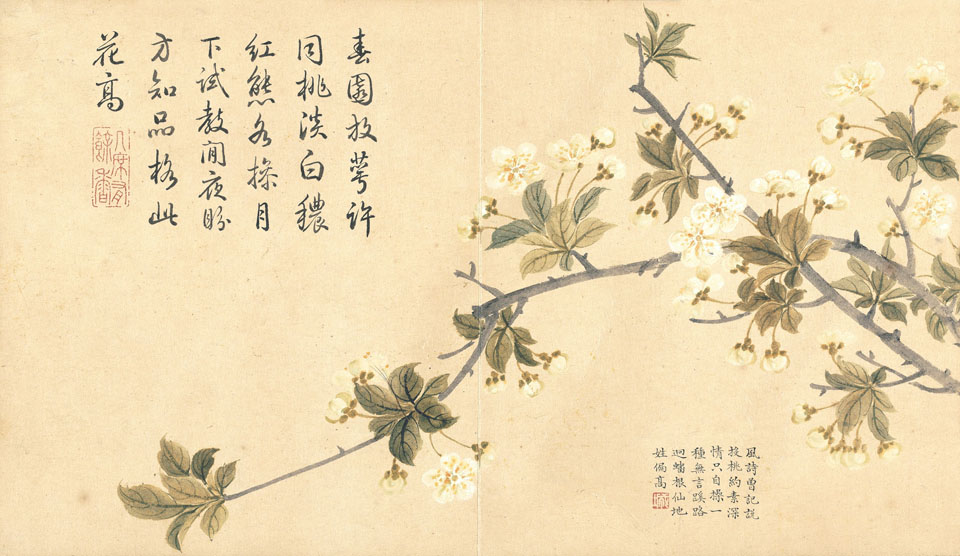 春園放萼許
同桃淡白穠
紅態各操月
下試教閒夜盼
方知品格此
花高
几席有
餘香
風詩曾記説
投桃約素深
情只自操一
種無言蹊路
迥蟠根仙地
姓偏高